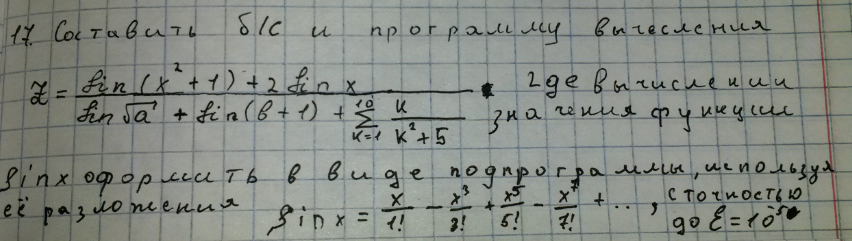 17. Составить б/с и программу вычесления
Z = (sin(x² + 1) + 2 sin x) / (sin √a + sin(b + 1) + ∑_{k=1}^{10} k / (k² + 5)) . где вычислении
значения функции
sin x оформить в виде подпрограммы, используя
её разложения sin x = x/1! - x³/3! + x⁵/5! - x⁷/7! + .., с точностью
до ε = 10⁻⁵